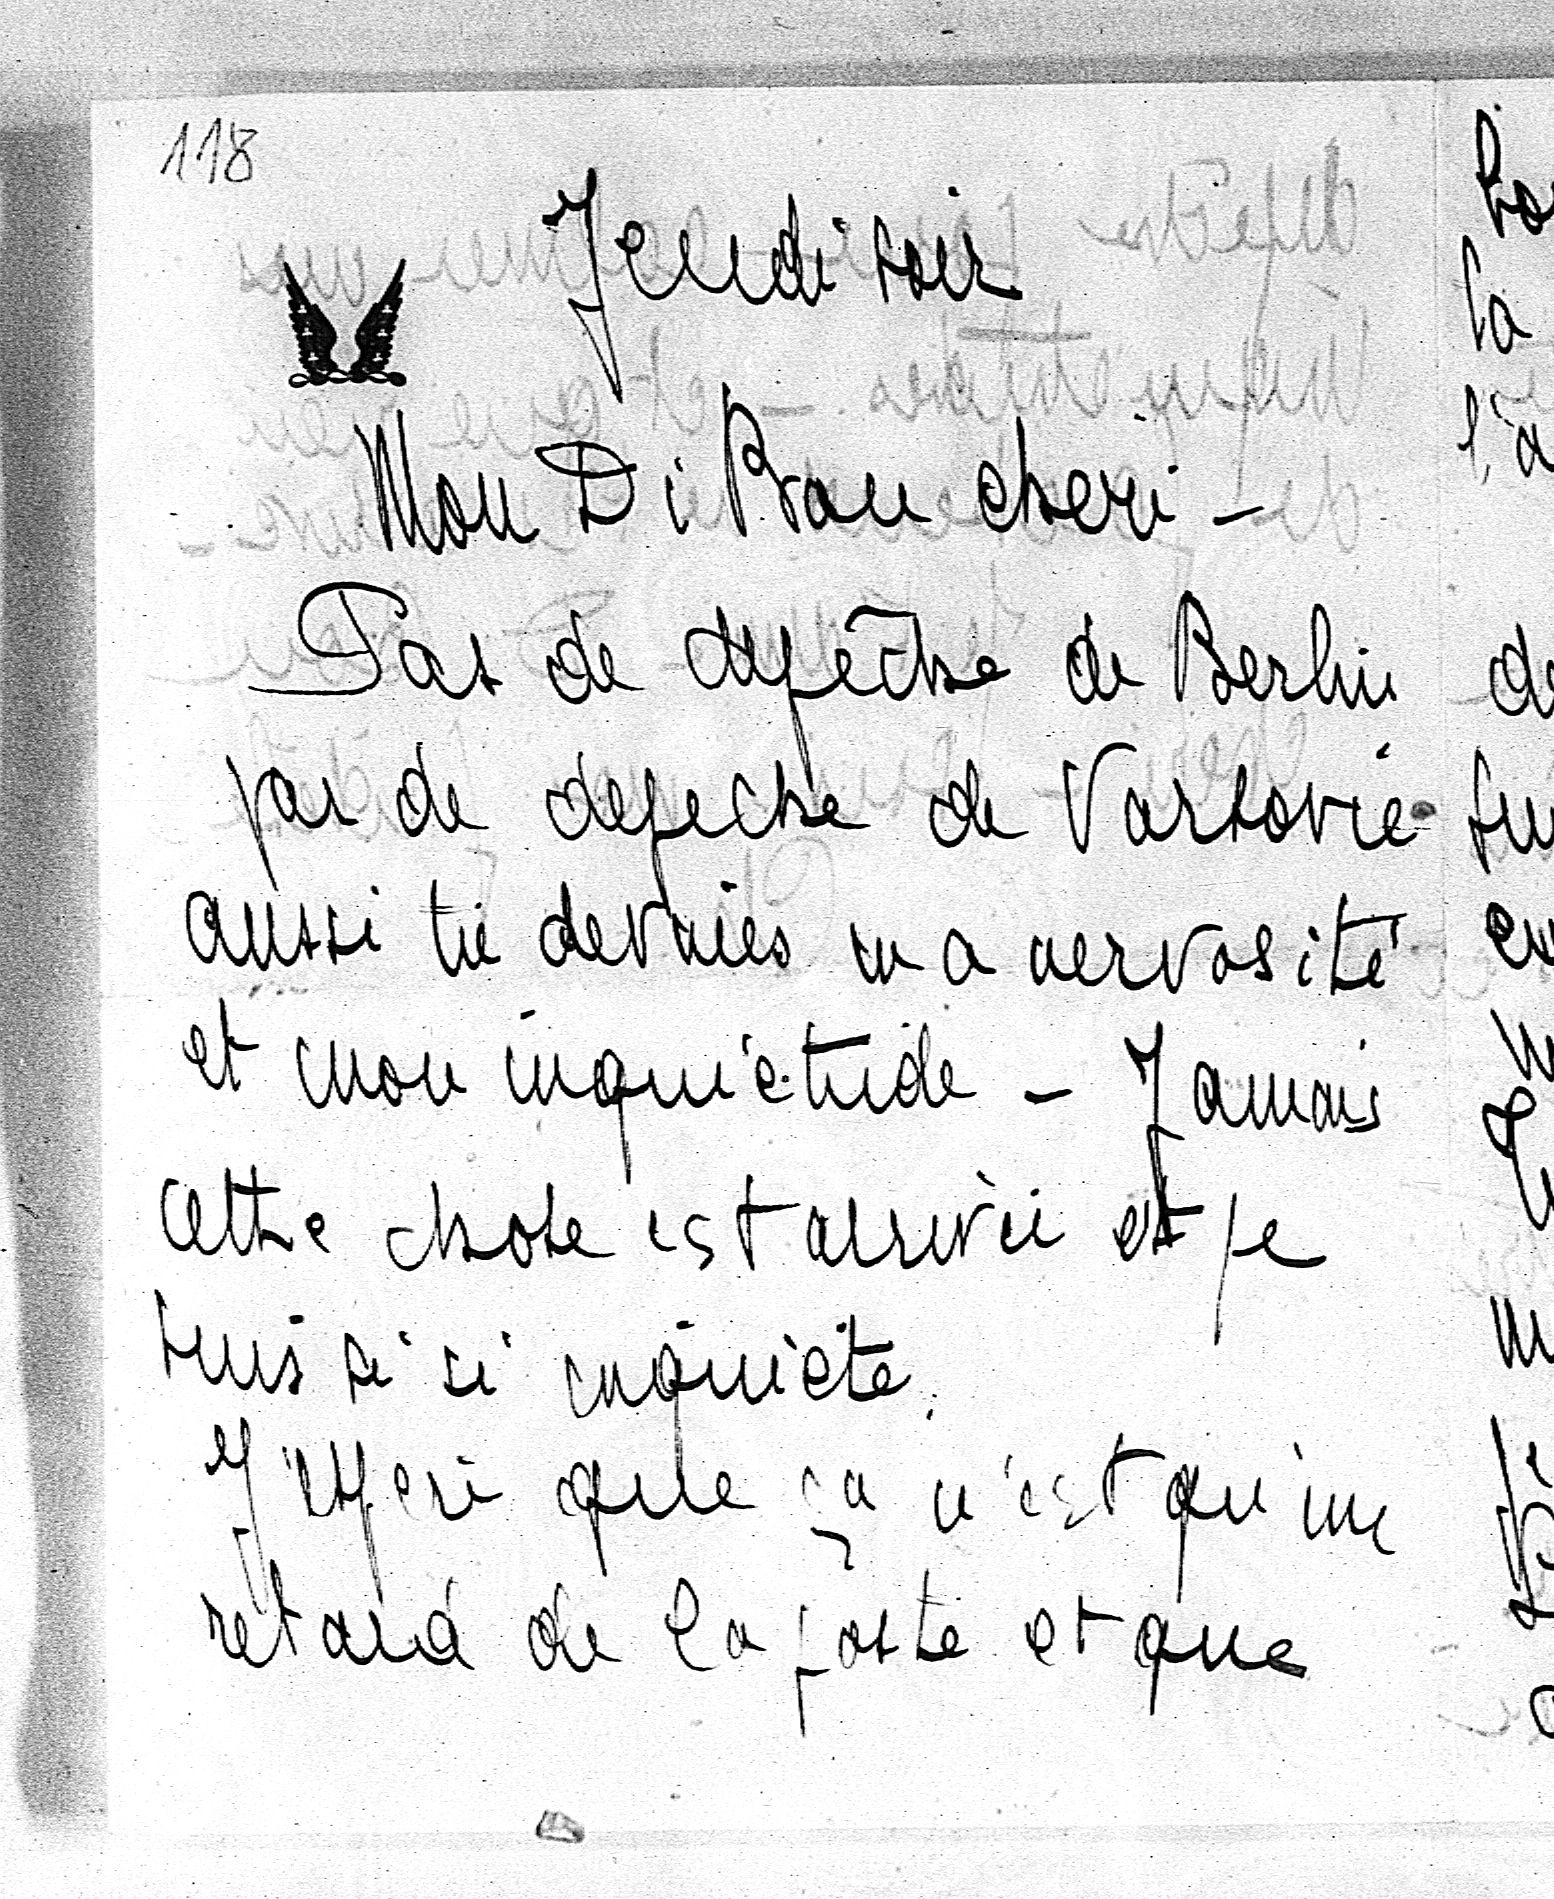 118
Jeudi soir
Mon Di Brau cheri -
Pas de depêche de Berlin
pas de depeche de Varsovie
aussi tu devnies ma nervosité
et mon inquiétude - Jamais
cette chose est arrivée et je
suis si si inquiète.
J'esperi que ça n'est qu'une
retard de la poste et que